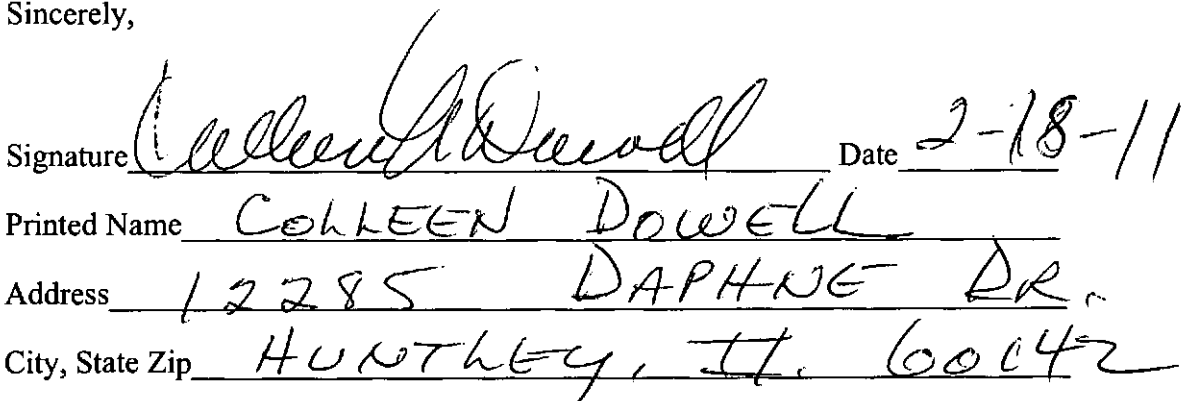 Sincerely,
Signature Colleen M Dowell Date 2-18-11
Printed Name COLLEEN DOWELL
Address 12285 DAPHNE DR.
City, State Zip HUNTLEY, IL. 60142